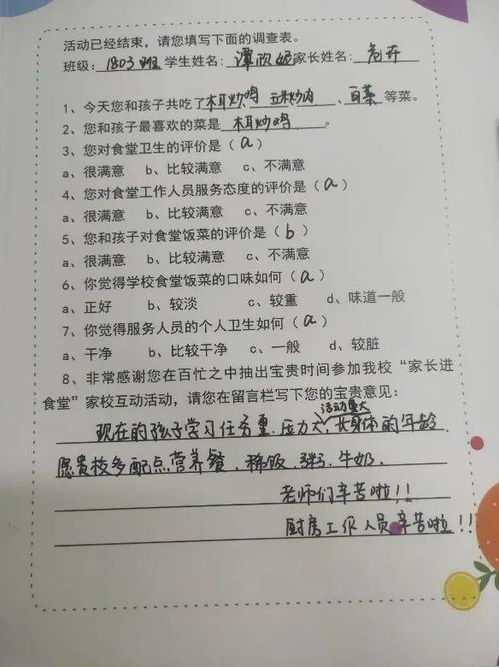 活动已经结束，请您填写下面的调查表。
班级：1803班 学生姓名：谭欣妮 家长姓名：
1、今天您和孩子共吃了木耳炒鸡 玉米炒肉、白菜等菜。
2、您和孩子最喜欢的菜是 木耳炒鸡。
3、您对食堂卫生的评价是（a）
a、很满意 b、比较满意 c、不满意
4、您对食堂工作人员服务态度的评价是（a）
a、很满意 b、比较满意 c、不满意
5、您和孩子对食堂饭菜的评价是（b）
a、很满意 b、比较满意 c、不满意
6、你觉得学校食堂饭菜的口味如何（a）
a、正好 b、较淡 c、较重 d、味道一般
7、你觉得服务人员的个人卫生如何（a）
a、干净 b、比较干净 c、一般 d、较脏
8、非常感谢您在百忙之中抽出宝贵时间参加我校“家长进
食堂”家校互动活动，请您在留言栏写下您的宝贵意见：
活动量大
现在的孩子学习任务重，压力大，长身体的年龄
愿贵校多配点营养餐，稀饭、粥、牛奶。
老师们辛苦啦！！
厨房工作人员辛苦啦！！